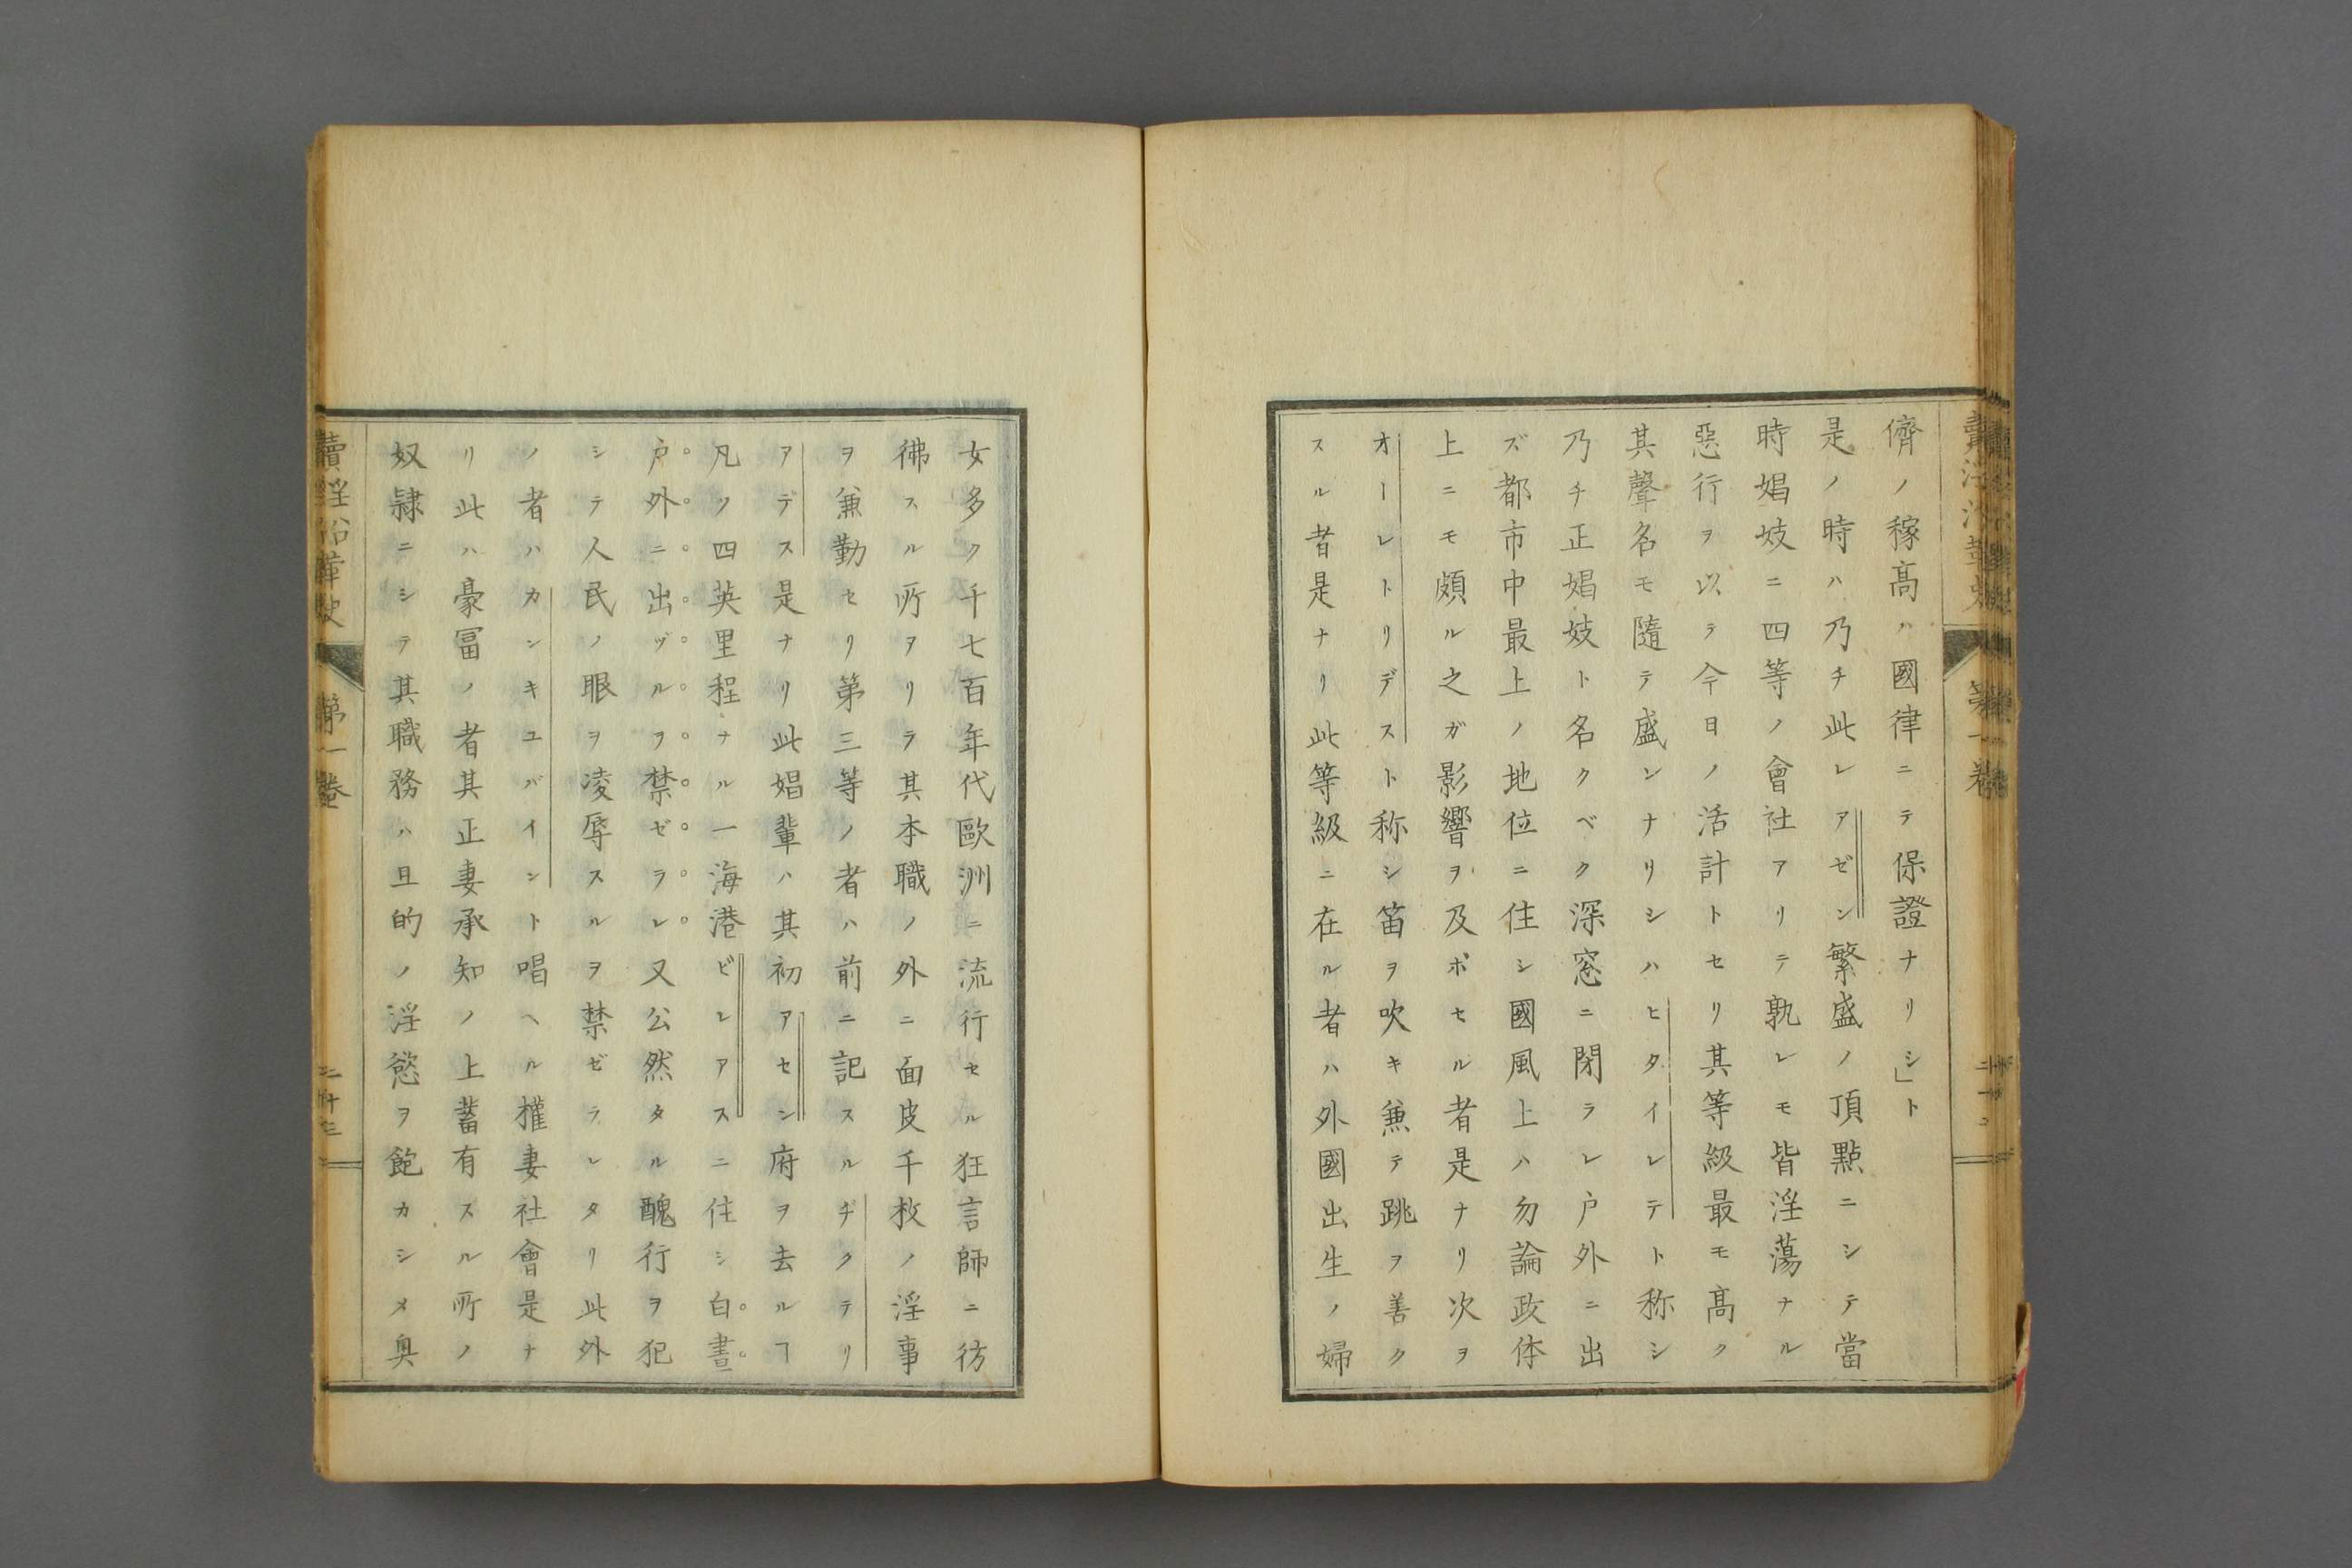 儕ノ稼高ハ國律ニテ保證ナリシ」ト
是ノ時ハ乃チ此レアゼン繁盛ノ頂點ニシテ當
時娼妓ニ四等ノ會社アリテ孰レモ皆淫蕩ナル
惡行ヲ以テ今日ノ活計トセリ其等級最モ高ク
其聲名モ隨テ盛ンナリシハヒタイレテト称シ
乃チ正娼妓ト名クベク深窓ニ閉ラレ戸外ニ出
ズ都市中最上ノ地位ニ住シ國風上ハ勿論政体
上ニモ頗ル之ガ影響ヲ及ボセル者是ナリ次ヲ
オーレトリデスト称シ笛ヲ吹キ兼テ跳ヲ善ク
スル者是ナリ此等級ニ在ル者ハ外國出生ノ婦
女多ク千七百年代歐洲ニ流行セル狂言師ニ彷
彿スル所アリテ其本職ノ外ニ面皮千枚ノ淫事
ヲ兼勤セリ第三等ノ者ハ前ニ記スルヂクテリ
アデス是ナリ此娼輩ハ其初アセン府ヲ去ルヿ
凡ソ四英里程ナル一海港ビレアスニ住シ白晝
戸外ニ出ヅルヲ禁ゼラレ又公然タル醜行ヲ犯
シテ人民ノ眼ヲ凌辱スルヲ禁ゼラレタリ此外
ノ者ハカンキユバインント唱ヘル權妻社會是ナ
リ此ハ豪冨ノ者其正妻承知ノ上蓄有スル所ノ
奴隷ニシテ其職務ハ旦的ノ淫慾ヲ飽カシメ奥
賣淫沿革史
第一卷